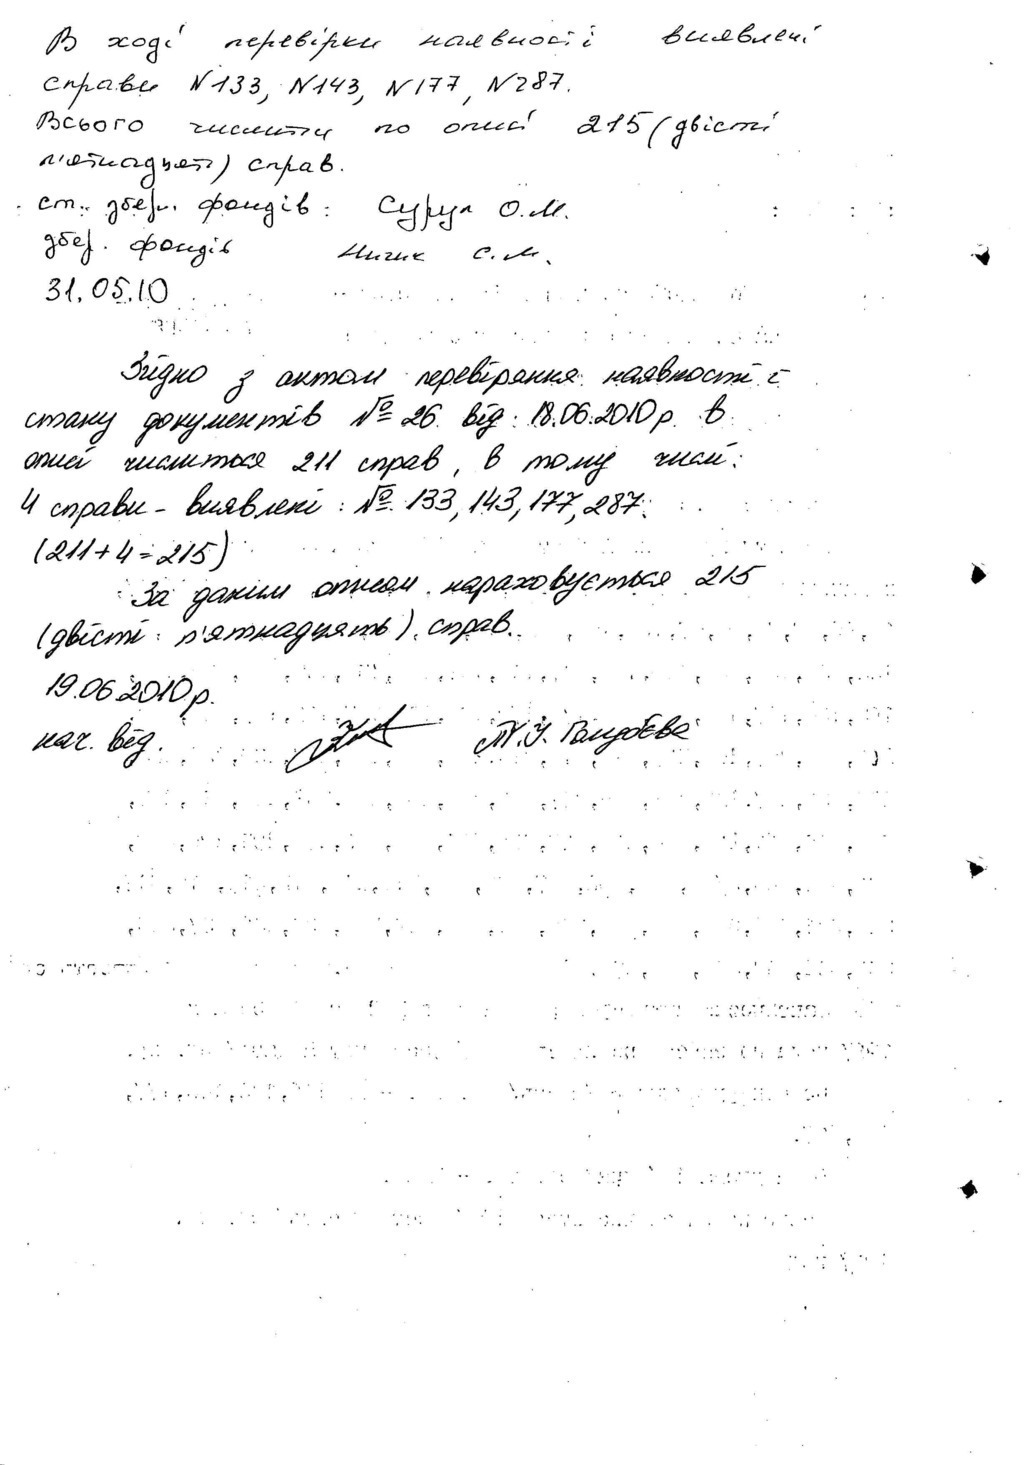 В ході перевірки наявності виявлені
справи N133, N143, N177, N287.
Всього числити по описі 215 (двісті
п'ятнадцять) справ.
ст. збер. фондів: Сурул О.М.
збер. фондів С.М.
31.05.10
Згідно з актом перевіряння наявності і
стану документів № 26 від 18.06.2010 р. в
описі числиться 211 справ, в тому числі:
4 справи - виявлені: №. 133, 143, 177, 287.
(211+4=215)
За даним описом нараховується 215
(двісті п'ятнадцять) справ.
19.06.2010 р.
нач. від.